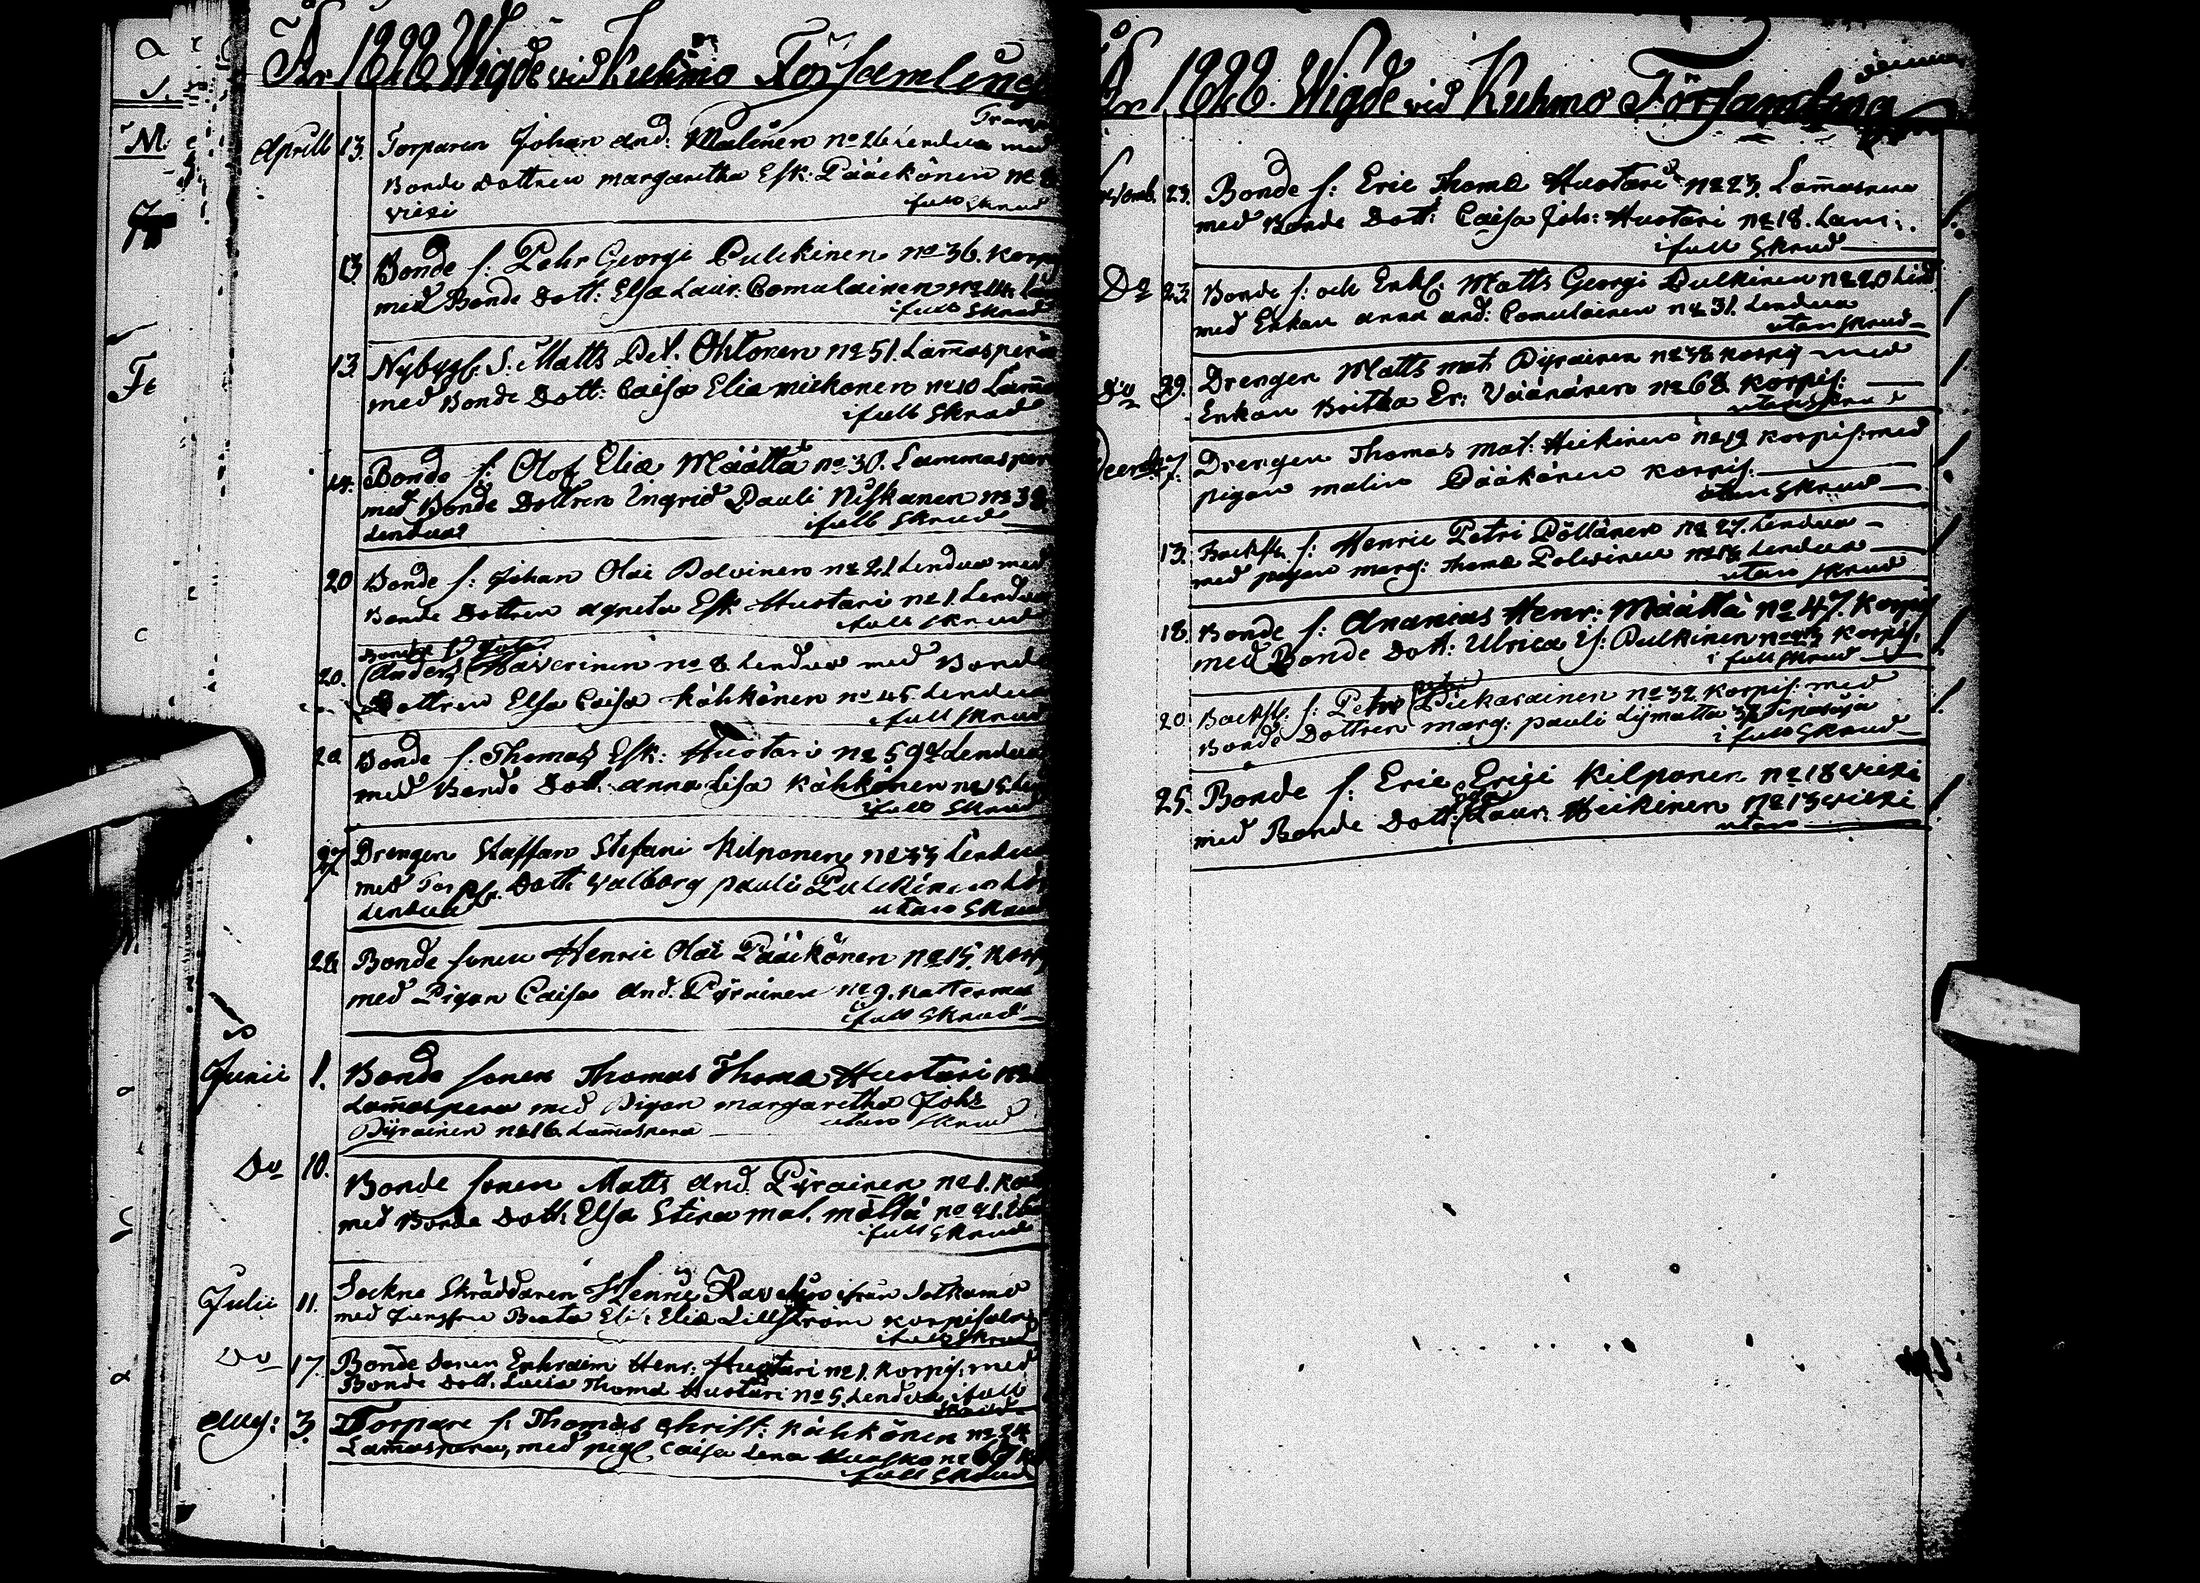 År 1822 Wigde vid Kuhmo Församling
Aprill 13. Torparen Johan And: Malinen No 26 Lendua med
Bonde Dottren Margaretha Esk: Pääckönen No
vieki i full Skrud
13. Bonde s: Pehr Georgi Pulckinen No 36. Korpi
med Bonde Dott: Elsa Laur: Comulainen No
i full Skrud
13 Nybygs: S: Matts Pet. Ohtonen No 51. Lam̄aspera
med Bonde Dott: Caisa Eliæ Mickonen No 10 Lam̄
i full Skrud
14. Bonde s: Olof Eliæ Määttä No 30. Lammasper
med Bonde Dottren Ingrid Pauli Niskanen No 38.
Lendua i full Skrud
20 Bonde s: Johan Olai Polvinen No 21 Lendua med
Bonde Dottren Agneta Esk: Huotari No 1. Lendua
i full Skrud
Bonde S
20. Anders Haverinen No 8 Lendua med Bonde
Dottren Elsa Caisa Kähkönen No 45 Lendua
i full Skrud
20 Bonde s. Thomas Esk: Huotari No 59 Lendua
med Bonde Dott: Anna Lisa Kähkönen No 15
i full Skrud
27 Drengen Staffan Stefani Kilponen No 33 Lendua
med Torp: Dott: Valborg Pauli Pulckinen
Lendua utan Skrud
28 Bonde sonen Henric Olai Pääckönen No 15. Korpi
med Pigan Caisa And: Pyrainen No 9. Katterma
i full Skrud
Junii 1. Bonde sonen Thomas Thomæ Huotari No
Lam̄aspera med Pigan Margaretha Joh:
Pyrainen No 16. Lam̄aspera utan Skrud
Do 10. Bonde sonen Matts And: Pyrainen No 1.
med Bonde Dott: Elsa Stina Mat. Mättä No 21.
i full Skrud
Julii 11. Sockne Skräddaren Henric Ravelin ifrån Sotkamo
med Jungfru Beata Eliæ Lillström Korpisalmi
i full Skrud
Do 17. Bonde Sonen Enhraim Henr: Huotari No 1. Korpis: med
Bonde Dott: Lucia Thomæ Huotari No 5. Lendua i full
Skrud
Aug: 3. Torpare s: Thomas Christ: Kähkönen No 24
Lam̄aspera, med pig: Caisa Lena No 67
i full Skrud
År 1822. Wigde vid Kuhmo Församling
23. Bonde s: Eric Thomæ Huotari No 23. Lam̄aspera
med Bonde Dott: Caisa Joh: Huotari No 18. Lam:
i full Skrud
Do 23. Bonde s: och Enkl: Matts Georgi Pulkinen No 20
med Enkan Anna And: Comulainen No 31. Lendua
utan Skrud
Do 29. Drengen Matts Mat. Pyrainen No 38 Korpi med
Enkan Britha Er: Väänänen No 68 Korpis:
utan Skrud
Decemb: 7. Drengen Thomas Mat: Heikinen No 19 Korpis: med
pigan Malin Pääkönen Korpis.
utan Skrud
13. Backst: s: Henric Petri Pöllänen No 27. Lendua
med pigan Marg: Thomæ Polvinen No Lendua
utan Skrud
18. Bonde s: Ananias Henr: Määttä No 47. Korpis
med Bonde Dott: Ulrica Is: Pulkinen Korpis.
i full Skrud
20. Backst: s: Petri Pickarainen No 32 Korpis: med
Bonde Dottren Marg: Pauli Lijmatta Tipasoja
i full Skrud
25. Bonde s: Eric Erici Kilponen No 18 vieki
med Bonde Dott: Laur: Heikinen No 13 vieki
utan